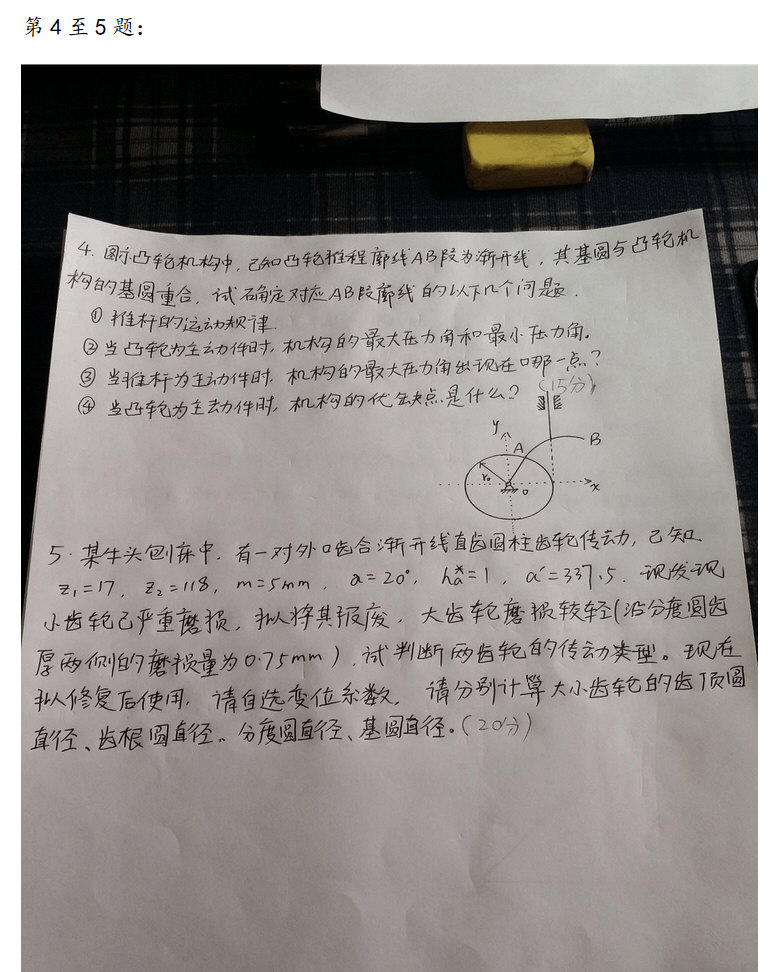 第 4 至 5 题：
4. 图示凸轮机构中，已知凸轮推程廓线AB段为渐开线，其基圆与凸轮机
构的基圆重合，试确定对应AB段廓线的以下几个问题．
① 推杆的运动规律．
② 当凸轮为主动件时，机构的最大压力角和最小压力角。
③ 当推杆为主动件时，机构的最大压力角出现在哪一点？
④ 当凸轮为主动件时，机构的优缺点是什么？（15分）
y
A
B
r₀
O
x
5．某牛头刨床中，有一对外啮合渐开线直齿圆柱齿轮传动，已知
z₁=17，z₂=118，m=5mm，α=20°，hₐ*=1，a'=337.5．现发现
小齿轮已严重磨损，拟将其报废，大齿轮磨损较轻（沿分度圆齿
厚两侧的磨损量为0.75mm），试判断两齿轮的传动类型。现在
拟修复后使用，请自选变位系数，请分别计算大小齿轮的齿顶圆
直径、齿根圆直径、分度圆直径、基圆直径。（20分）